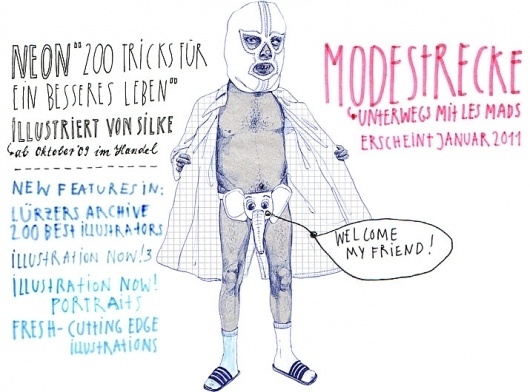 NEON "200 TRICKS FÜR
EIN BESSERES LEBEN"
ILLUSTRIERT VON SILKE
ab Oktober '09 im Handel
NEW FEATURES IN:
LÜRZERS ARCHIVE
200 BEST ILLUSTRATORS
ILLUSTRATION NOW! 3
ILLUSTRATION NOW!
PORTRAITS
FRESH-CUTTING EDGE
ILLUSTRATIONS
MODESTRECKE
UNTERWEGS MIT LES MADS
ERSCHEINT JANUAR 2011
WELCOME
MY FRIEND!